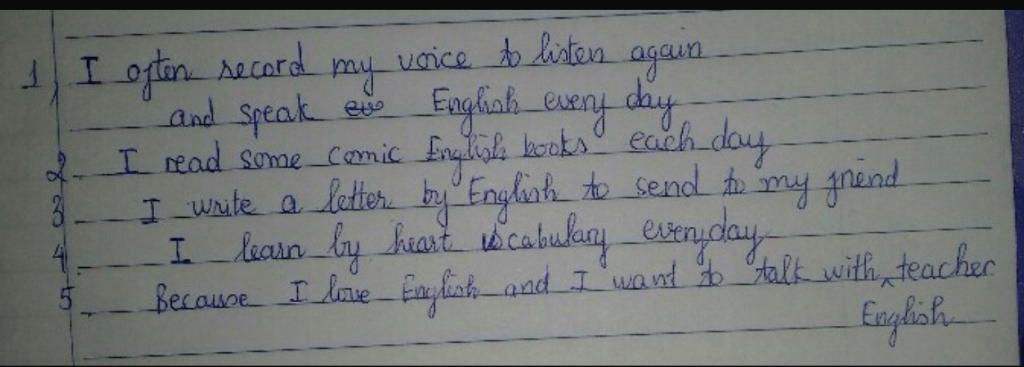 1 I often record my voice to listen again
and speak English every day
2. I read some comic English books each day
3 I write a letter by English to send to my friend
4 I learn by heart vocabulary everyday
5. Because I love English and I want to talk with ^ teacher
English